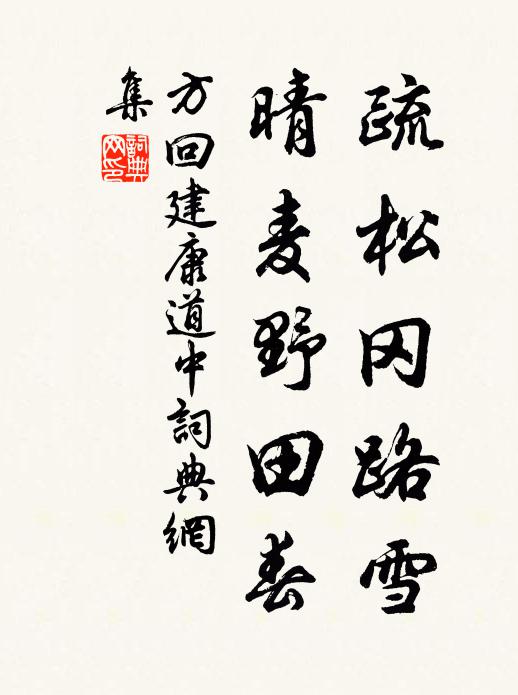 疏松冈路雪
晴麦野田春
方回建康道中詞典網
集
詞典网印